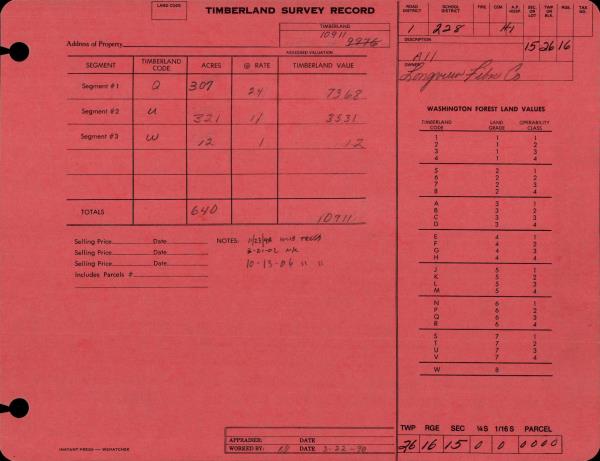 LAND CODE
TIMBERLAND SURVEY RECORD
TIMBERLAND
10911
Address of Property
9276
ASSESSED VALUATION
SEGMENT TIMBERLAND CODE ACRES @ RATE TIMBERLAND VAUE
Segment #1 Q 307 24 7368
Segment #2 U 321 11 3531
Segment #3 W 12 1 12
TOTALS 640 10911
Selling Price Date NOTES: 11/23/98
Selling Price Date 2-21-02 NK
Selling Price Date 10-13-06 " "
Includes Parcels #
APPRAISER: DATE
WORKED BY: DATE 3-22-90
INSTANT PRESS — WENATCHEE
ROAD DISTRICT SCHOOL DISTRICT FIRE CEM. A.P. HOSP. SEC. OR LOT TWP OR BLK. RGE. TAX NO.
1 228 H-1 15 26 16
DESCRIPTION
All
OWNER
Longview Fibre Co
WASHINGTON FOREST LAND VALUES
TIMBERLAND CODE LAND GRADE OPERABILITY CLASS
1 1 1
2 1 2
3 1 3
4 1 4
5 2 1
6 2 2
7 2 3
8 2 4
A 3 1
B 3 2
C 3 3
D 3 4
E 4 1
F 4 2
G 4 3
H 4 4
J 5 1
K 5 2
L 5 3
M 5 4
N 6 1
P 6 2
Q 6 3
R 6 4
S 7 1
T 7 2
U 7 3
V 7 4
W 8
TWP RGE SEC ¼S 1/16 S PARCEL
26 16 15 0 0 0000